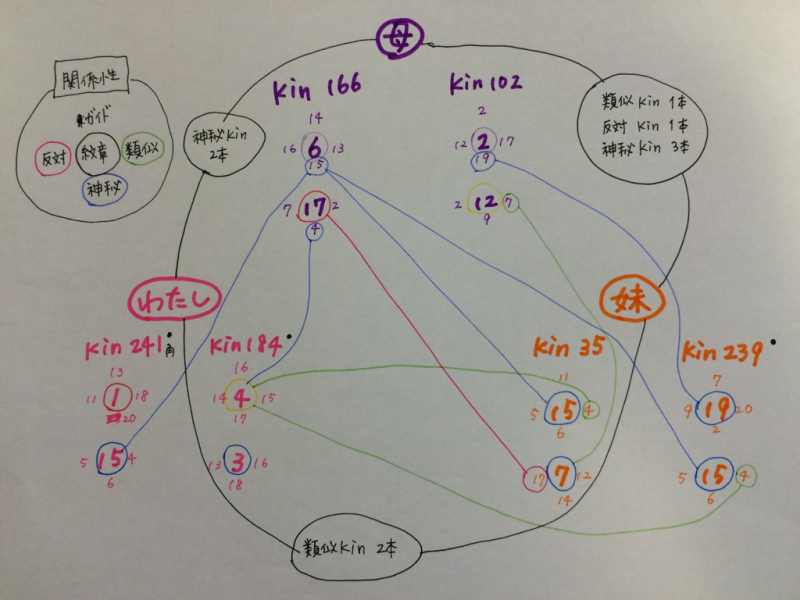 母
関係性
ガイド
反対 紋章 類似
神秘
Kin 166
14
16 6 13
15
7 17 2
4
Kin 102
2
12 2 17
19
2 12 7
9
神秘Kin
2本
類似Kin 1本
反対Kin 1本
神秘Kin 3本
わたし
Kin 241
角
13
11 1 18
20
5 15 4
6
Kin 184
16
14 4 15
17
13 3 16
18
妹
Kin 35
11
5 15 4
6
17 7 12
14
Kin 239
7
9 19 20
2
5 15 4
6
類似Kin 2本